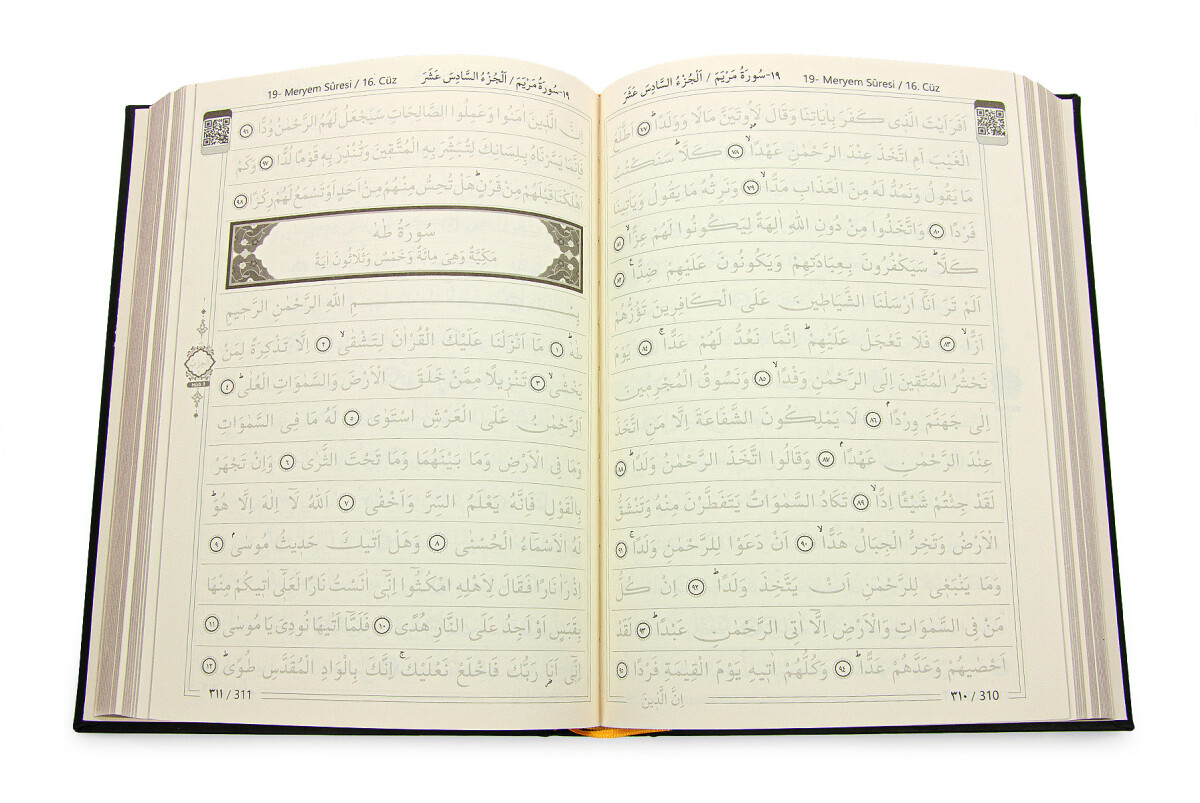 ١٩-سُورَةُ مَرْيَمَ / اَلْجُزْءُ السَّادِسَ عَشَرَ 19- Meryem Sûresi / 16. Cüz
اَفَرَاَيْتَ الَّذٖى كَفَرَ بِاٰيَاتِنَا وَقَالَ لَاُوتَيَنَّ مَالًا وَوَلَدًاؕ ﴿٧٧﴾ اَطَّلَعَ
الْغَيْبَ اَمِ اتَّخَذَ عِنْدَ الرَّحْمٰنِ عَهْدًاۙ ﴿٧٨﴾ كَلَّاؕ سَنَكْتُبُ
مَا يَقُولُ وَنَمُدُّ لَهُ مِنَ الْعَذَابِ مَدًّاۙ ﴿٧٩﴾ وَنَرِثُهُ مَا يَقُولُ وَيَاْتٖينَا
فَرْدًا ﴿٨٠﴾ وَاتَّخَذُوا مِنْ دُونِ اللّٰهِ اٰلِهَةً لِيَكُونُوا لَهُمْ عِزًّاۙ ﴿٨١﴾
كَلَّاؕ سَيَكْفُرُونَ بِعِبَادَتِهِمْ وَيَكُونُونَ عَلَيْهِمْ ضِدًّاࣖ ﴿٨٢﴾
اَلَمْ تَرَ اَنَّٓا اَرْسَلْنَا الشَّيَاطٖينَ عَلَى الْكَافِرٖينَ تَؤُزُّهُمْ
اَزًّاۙ ﴿٨٣﴾ فَلَا تَعْجَلْ عَلَيْهِمْؕ اِنَّمَا نَعُدُّ لَهُمْ عَدًّاۚ ﴿٨٤﴾ يَوْمَ
نَحْشُرُ الْمُتَّقٖينَ اِلَى الرَّحْمٰنِ وَفْدًاۙ ﴿٨٥﴾ وَنَسُوقُ الْمُجْرِمٖينَ
اِلٰى جَهَنَّمَ وِرْدًاۢ ﴿٨٦﴾ لَا يَمْلِكُونَ الشَّفَاعَةَ اِلَّا مَنِ اتَّخَذَ
عِنْدَ الرَّحْمٰنِ عَهْدًاۢ ﴿٨٧﴾ وَقَالُوا اتَّخَذَ الرَّحْمٰنُ وَلَدًاؕ ﴿٨٨﴾
لَقَدْ جِئْتُمْ شَيْـًٔا اِدًّاۙ ﴿٨٩﴾ تَكَادُ السَّمٰوَاتُ يَتَفَطَّرْنَ مِنْهُ وَتَنْشَقُّ
الْاَرْضُ وَتَخِرُّ الْجِبَالُ هَدًّاۙ ﴿٩٠﴾ اَنْ دَعَوْا لِلرَّحْمٰنِ وَلَدًاۚ ﴿٩١﴾
وَمَا يَنْبَغٖى لِلرَّحْمٰنِ اَنْ يَتَّخِذَ وَلَدًاؕ ﴿٩٢﴾ اِنْ كُلُّ
مَنْ فِى السَّمٰوَاتِ وَالْاَرْضِ اِلَّٓا اٰتِى الرَّحْمٰنِ عَبْدًاؕ ﴿٩٣﴾ لَقَدْ
اَحْصٰيهُمْ وَعَدَّهُمْ عَدًّاؕ ﴿٩٤﴾ وَكُلُّهُمْ اٰتٖيهِ يَوْمَ الْقِيٰمَةِ فَرْدًا ﴿٩٥﴾
٣١٠ / 310
اِنَّ الَّذٖينَ
19- Meryem Sûresi / 16. Cüz ١٩-سُورَةُ مَرْيَمَ / اَلْجُزْءُ السَّادِسَ عَشَرَ
اِنَّ الَّذٖينَ اٰمَنُوا وَعَمِلُوا الصَّالِحَاتِ سَيَجْعَلُ لَهُمُ الرَّحْمٰنُ وُدًّا ﴿٩٦﴾
فَاِنَّمَا يَسَّرْنَاهُ بِلِسَانِكَ لِتُبَشِّرَ بِهِ الْمُتَّقٖينَ وَتُنْذِرَ بِهٖ قَوْمًا لُدًّا ﴿٩٧﴾ وَكَمْ
اَهْلَكْنَا قَبْلَهُمْ مِنْ قَرْنٍؕ هَلْ تُحِسُّ مِنْهُمْ مِنْ اَحَدٍ اَوْ تَسْمَعُ لَهُمْ رِكْزًا ﴿٩٨﴾
سُورَةُ طٰهٰ
مَكِّيَّةٌ وَهِىَ مِائَةٌ وَخَمْسٌ وَثَلَاثُونَ اٰيَةً
بِسْمِ اللّٰهِ الرَّحْمٰنِ الرَّحٖيمِ
طٰهٰؕ ﴿١﴾ مَٓا اَنْزَلْنَا عَلَيْكَ الْقُرْاٰنَ لِتَشْقٰىۙ ﴿٢﴾ اِلَّا تَذْكِرَةً لِمَنْ
يَخْشٰىۙ ﴿٣﴾ تَنْزٖيلًا مِمَّنْ خَلَقَ الْاَرْضَ وَالسَّمٰوَاتِ الْعُلٰىؕ ﴿٤﴾
اَلرَّحْمٰنُ عَلَى الْعَرْشِ اسْتَوٰى ﴿٥﴾ لَهُ مَا فِى السَّمٰوَاتِ
وَمَا فِى الْاَرْضِ وَمَا بَيْنَهُمَا وَمَا تَحْتَ الثَّرٰى ﴿٦﴾ وَاِنْ تَجْهَرْ
بِالْقَوْلِ فَاِنَّهُ يَعْلَمُ السِّرَّ وَاَخْفٰى ﴿٧﴾ اَللّٰهُ لَٓا اِلٰهَ اِلَّا هُوَؕ
لَهُ الْاَسْمَٓاءُ الْحُسْنٰى ﴿٨﴾ وَهَلْ اَتٰيكَ حَدٖيثُ مُوسٰىۢ ﴿٩﴾
اِذْ رَاٰ نَارًا فَقَالَ لِاَهْلِهِ امْكُثُٓوا اِنّٖٓى اٰنَسْتُ نَارًا لَعَلّٖٓى اٰتٖيكُمْ مِنْهَا
بِقَبَسٍ اَوْ اَجِدُ عَلَى النَّارِ هُدًى ﴿١٠﴾ فَلَمَّٓا اَتٰيهَا نُودِىَ يَا مُوسٰى ﴿١١﴾
اِنّٖٓى اَنَا۬ رَبُّكَ فَاخْلَعْ نَعْلَيْكَۚ اِنَّكَ بِالْوَادِ الْمُقَدَّسِ طُوًىؕ ﴿١٢﴾
٣١١ / 311